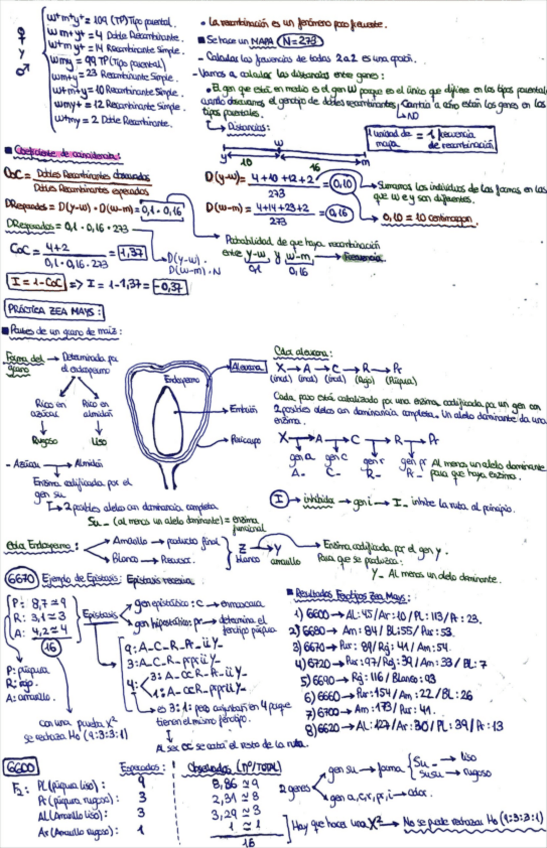 w+m+y+ = 109 (TP) Tipo parental.
w m+y+ = 4 Doble Recombinante.
w+m y+ = 14 Recombinante Simple.
wmy = 99 TP (Tipo parental)
wm+y = 23 Recombinante Simple.
w+m+y = 10 Recombinante Simple.
wmy+ = 12 Recombinante Simple.
w+my = 2 Doble Recombinante.
♀ y ♂
• La recombinación es un fenómeno poco frecuente.
■ Se hace un MAPA (N=273)
- Calcular las frecuencias de todas 2 a 2 es una opción.
- Vamos a calcular las distancias entre genes:
• El gen que está en medio es el gen W porque es el único que difiere en los tipos parentales
tipos parentales.
→ NO
→ Distancias:
y 10 w 16 m
1 unidad de mapa = 1 frecuencia de recombinación
D(y-w) = 4+10+12+2 / 273 = 0,10
→ Sumamos los individuos de las formas en las que w e y son diferentes.
D(w-m) = 4+14+23+2 / 273 = 0,16
→ 0,10 = 10 centimorgan.
Probabilidad de que haya recombinación
entre y-w y w-m → Frecuencia.
0,1 0,16
■ Coeficiente de coincidencia:
CoC = Dobles Recombinantes observados / Dobles Recombinantes esperados
DResperados = D(y-w) · D(w-m) = 0,1 · 0,16
DResperados = 0,1 · 0,16 · 273
→ D(y-w) · D(w-m) · N
CoC = 4+2 / 0,1 · 0,16 · 273 = 1,37
I = 1-CoC => I = 1-1,37 = -0,37
PRÁCTICA ZEA MAYS:
■ Partes de un grano de maíz:
Forma del grano → Determinada por el endospermo
Rico en azúcar → Rugoso
Rico en almidón → Liso
- Azúcar → Almidón
Enzima codificada por el gen su
→ 2 posibles alelos con dominancia completa
Su_ (al menos un alelo dominante) = enzima funcional
Endospermo
Aleurona
Embrión
Pericarpo
Color aleurona:
X → A → C → R → Pr
(incol) (incol) (incol) (Rojo) (Púrpura)
Cada paso está catalizado por una enzima codificada por un gen con
2 posibles alelos con dominancia completa. Un alelo dominante da una
enzima.
X → A → C → R → Pr
gen a gen c gen r gen pr
A_ C_ R_ Pr_
Al menos un alelo dominante
para que haya enzima.
I → inhibida → gen i → I_ inhibe la ruta al principio.
Color Endospermo:
Amarillo → producto final
Blanco → Precursor.
Z → Y
blanco amarillo
Enzima codificada por el gen y.
Para que se produzca:
Y_ Al menos un alelo dominante.
6670 Ejemplo de Epistasis: Epistasia recesiva
P: 8,7 ≃ 9
R: 3,1 ≃ 3
A: 4,2 ≃ 4
16
Epistasis
gen epistático: C → enmascara
gen hipostático: pr → determina el fenotipo púrpura
P: púrpura
R: rojo.
A: amarillo.
con una prueba X²
se rechaza H₀ (9:3:3:1)
9: A_C_R_Pr_ii Y_
3: A_C_R_prpr ii Y_
4: 3: A_cc R_Pr_ii Y_
1: A_cc R_prpr ii Y_
→ es 3:1: pero conjuntan en 4 porque
tienen el mismo fenotipo.
Al ser cc se corta el resto de la ruta.
■ Resultados Fenotipos Zea Mays:
1) 6600 → AL: 45/Ar: 10/PL: 113/Pr: 23.
2) 6680 → Am: 84/BL: 55/Pur: 53.
3) 6670 → Pur: 89/Roj: 41/Am: 54.
4) 6720 → Pur: 97/Roj: 39/Am: 33/BL: 7
5) 6690 → Roj: 116/Blanco: 93
6) 6660 → Pur: 154/Am: 22/BL: 26
7) 6700 → Am: 173/Pur: 41.
8) 6620 → AL: 127/Ar: 30/PL: 39/Ar: 13
6600
Esperados: Observados (nº/TOTAL)
F₂: PL (púrpura liso): 9 8,86 ≃ 9
Pr (púrpura rugoso): 3 2,31 ≃ 3
AL (Amarillo liso): 3 3,29 ≃ 3
Ar (Amarillo rugoso): 1 1 ≃ 1
16
2 genes
gen su → forma
Su_ → liso
susu → rugoso
gen a,c,r,pr,i → color.
Hay que hacer una X² → No se puede rechazar H₀ (9:3:3:1)